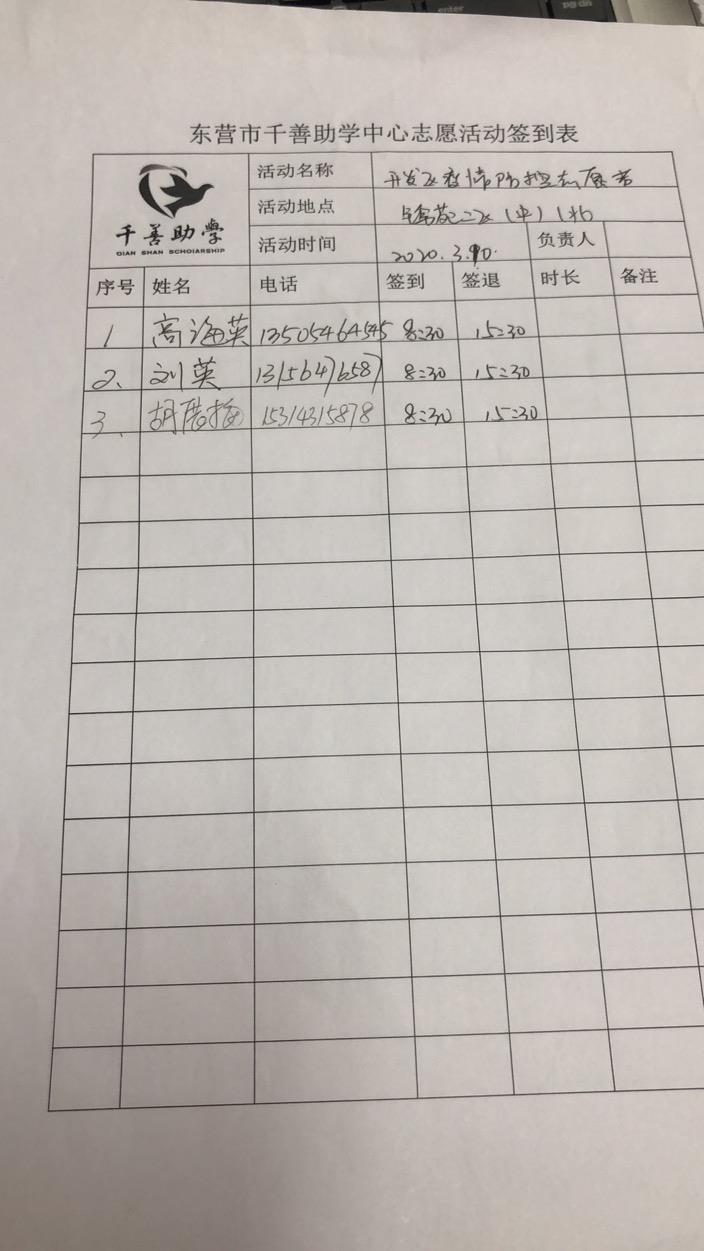 enter
pg dn
东营市千善助学中心志愿活动签到表
千善助學
QIAN SHAN SCHOIARSHIP
活动名称 开发区疫情防控志愿者
活动地点 (中)
活动时间 2020.3.10. 负责人
序号 姓名 电话 签到 签退 时长 备注
1 高海英 13505464545 8:30 15:30
2、 刘英 13156476587 8:30 15:30
3、 胡 15314315878 8:30 15:30